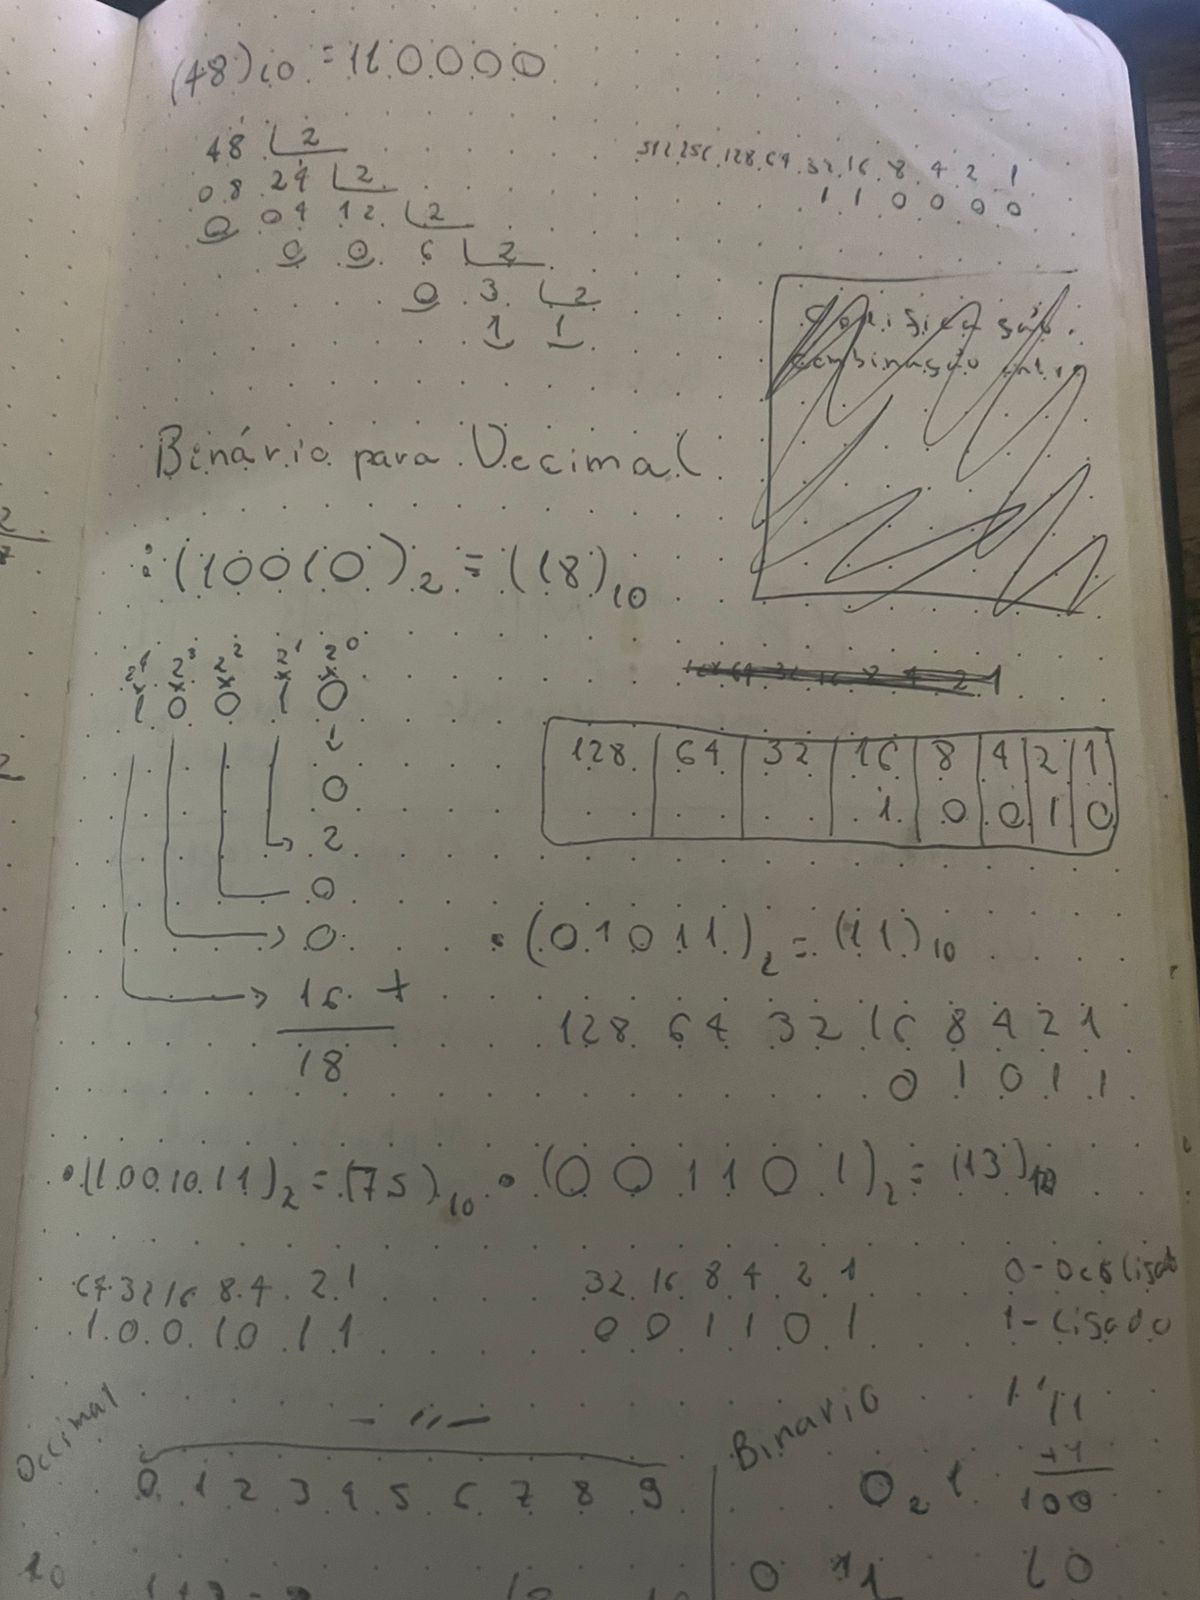 (48)10 = 110000
48 2
08 24 2
0 04 12 2
0 0 6 2
0 3 2
1 1
512 256 128 64 32 16 8 4 2 1
1 1 0 0 0 0
combinação
Binário para Decimal
(10010)2 = (18)10
2^4 2^3 2^2 2^1 2^0
x x x x x
1 0 0 1 0
0
2
0
0
16 +
18
128 64 32 16 8 4 2 1
128 64 32 16 8 4 2 1
1 0 0 1 0
• (01011)2 = (11)10
128 64 32 16 8 4 2 1
0 1 0 1 1
• (1001011)2 = (75)10
64 32 16 8 4 2 1
1 0 0 1 0 1 1
• (001101)2 = (13)10
32 16 8 4 2 1
0 0 1 1 0 1
0 - Desligado
1 - Ligado
Decimal
0 1 2 3 4 5 6 7 8 9
10
Binario
0 2 1
+1
100
0 1
10